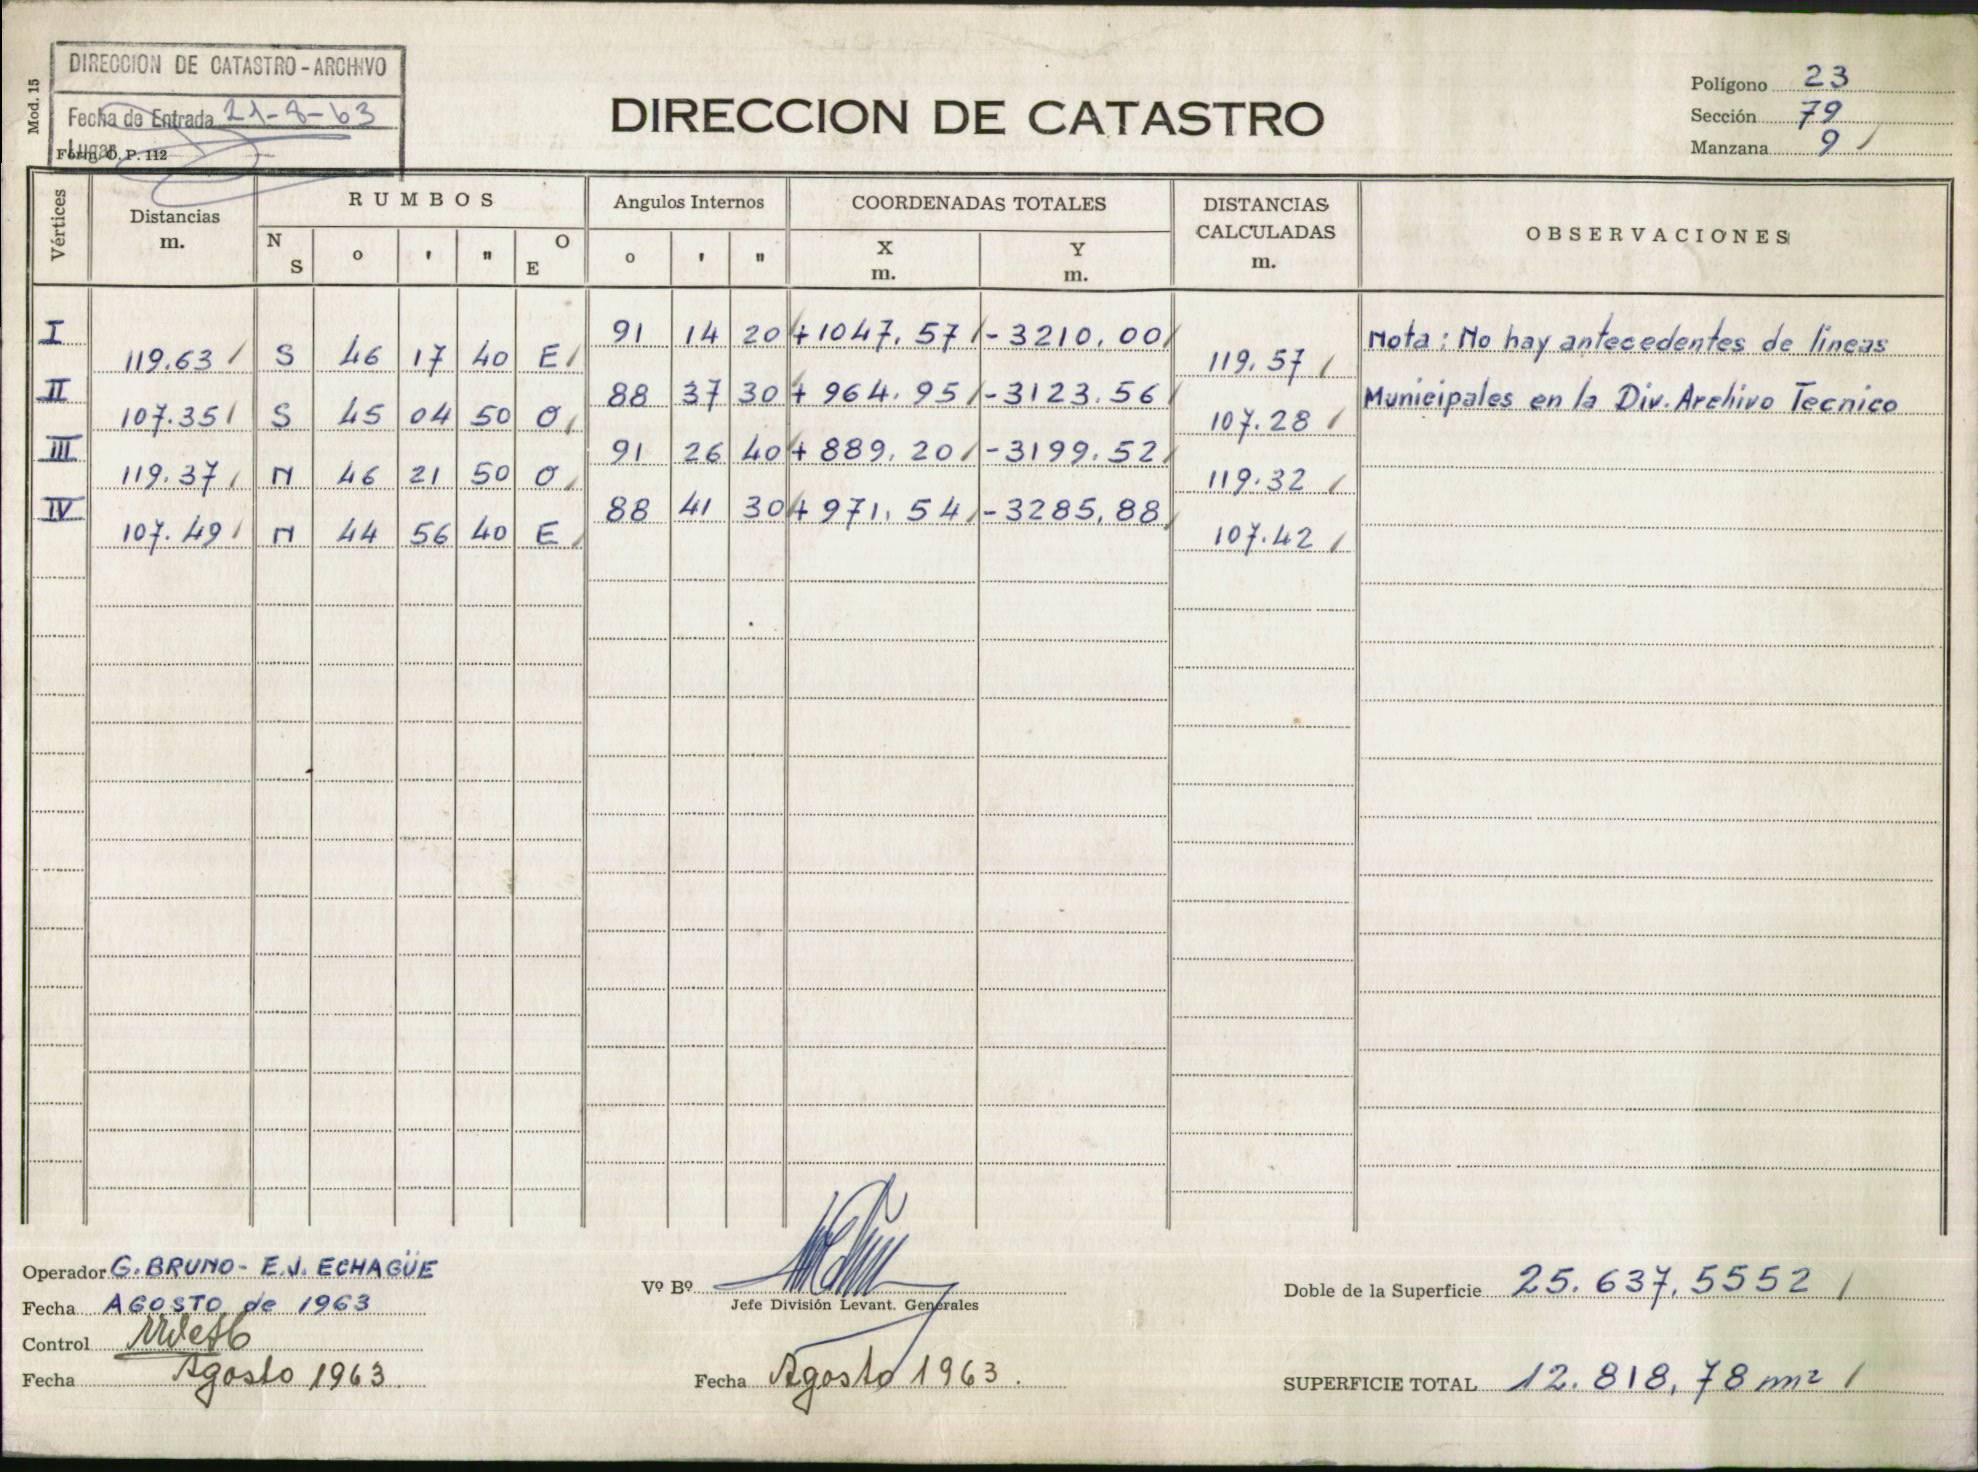 Mod. 15
DIRECCION DE CATASTRO-ARCHIVO
Fecha de Entrada 21-8-63
Lugar
Form. O. P. 112
DIRECCION DE CATASTRO
Polígono 23
Sección 79
Manzana 9 /
Vértices
Distancias
m.
RUMBOS
N S ° ' " O E
Angulos Internos
° ' "
COORDENADAS TOTALES
X m. Y m.
DISTANCIAS CALCULADAS m.
OBSERVACIONES
I 91 14 20 +1047,57 / -3210,00 /
119.63 / S 46 17 40 E / 119.57 /
II 88 37 30 + 964.95 / -3123.56 /
107.35 / S 45 04 50 O / 107.28 /
III 91 26 40 + 889,20 / -3199.52 /
119.37 / N 46 21 50 O / 119.32 /
IV 88 41 30 + 971,54 / -3285,88 /
107.49 / N 44 56 40 E / 107.42 /
Nota: No hay antecedentes de lineas
Municipales en la Div. Archivo Tecnico
Operador G. BRUNO - E.J. ECHAGÜE
Fecha AGOSTO de 1963
Control
Fecha Agosto 1963
Vº Bº
Jefe División Levant. Generales
Fecha Agosto 1963.
Doble de la Superficie 25.637,5552 /
SUPERFICIE TOTAL 12.818,78 m² /